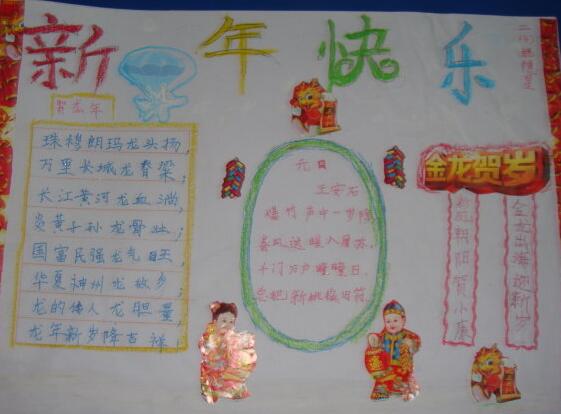 新年快乐
贺龙年
珠穆朗玛龙头扬,
万里长城龙脊梁,
长江黄河龙血淌,
炎黄子孙龙骨壮;
国富民强龙气旺,
华夏神州龙故乡,
龙的传人龙胆量,
龙年新岁降吉祥;
元日
王安石
爆竹声中一岁除,
春风送暖入屠苏,
千门万户曈曈日,
总把新桃换旧符,
金龙贺岁
金龙出海迎新岁
朝阳贺小康